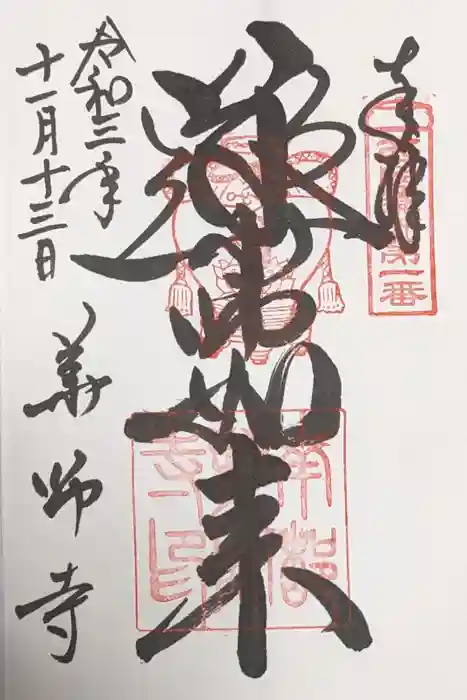 奉拝
第一番
薬師如来
南都
寺印
令和三年
十一月十三日
薬師寺